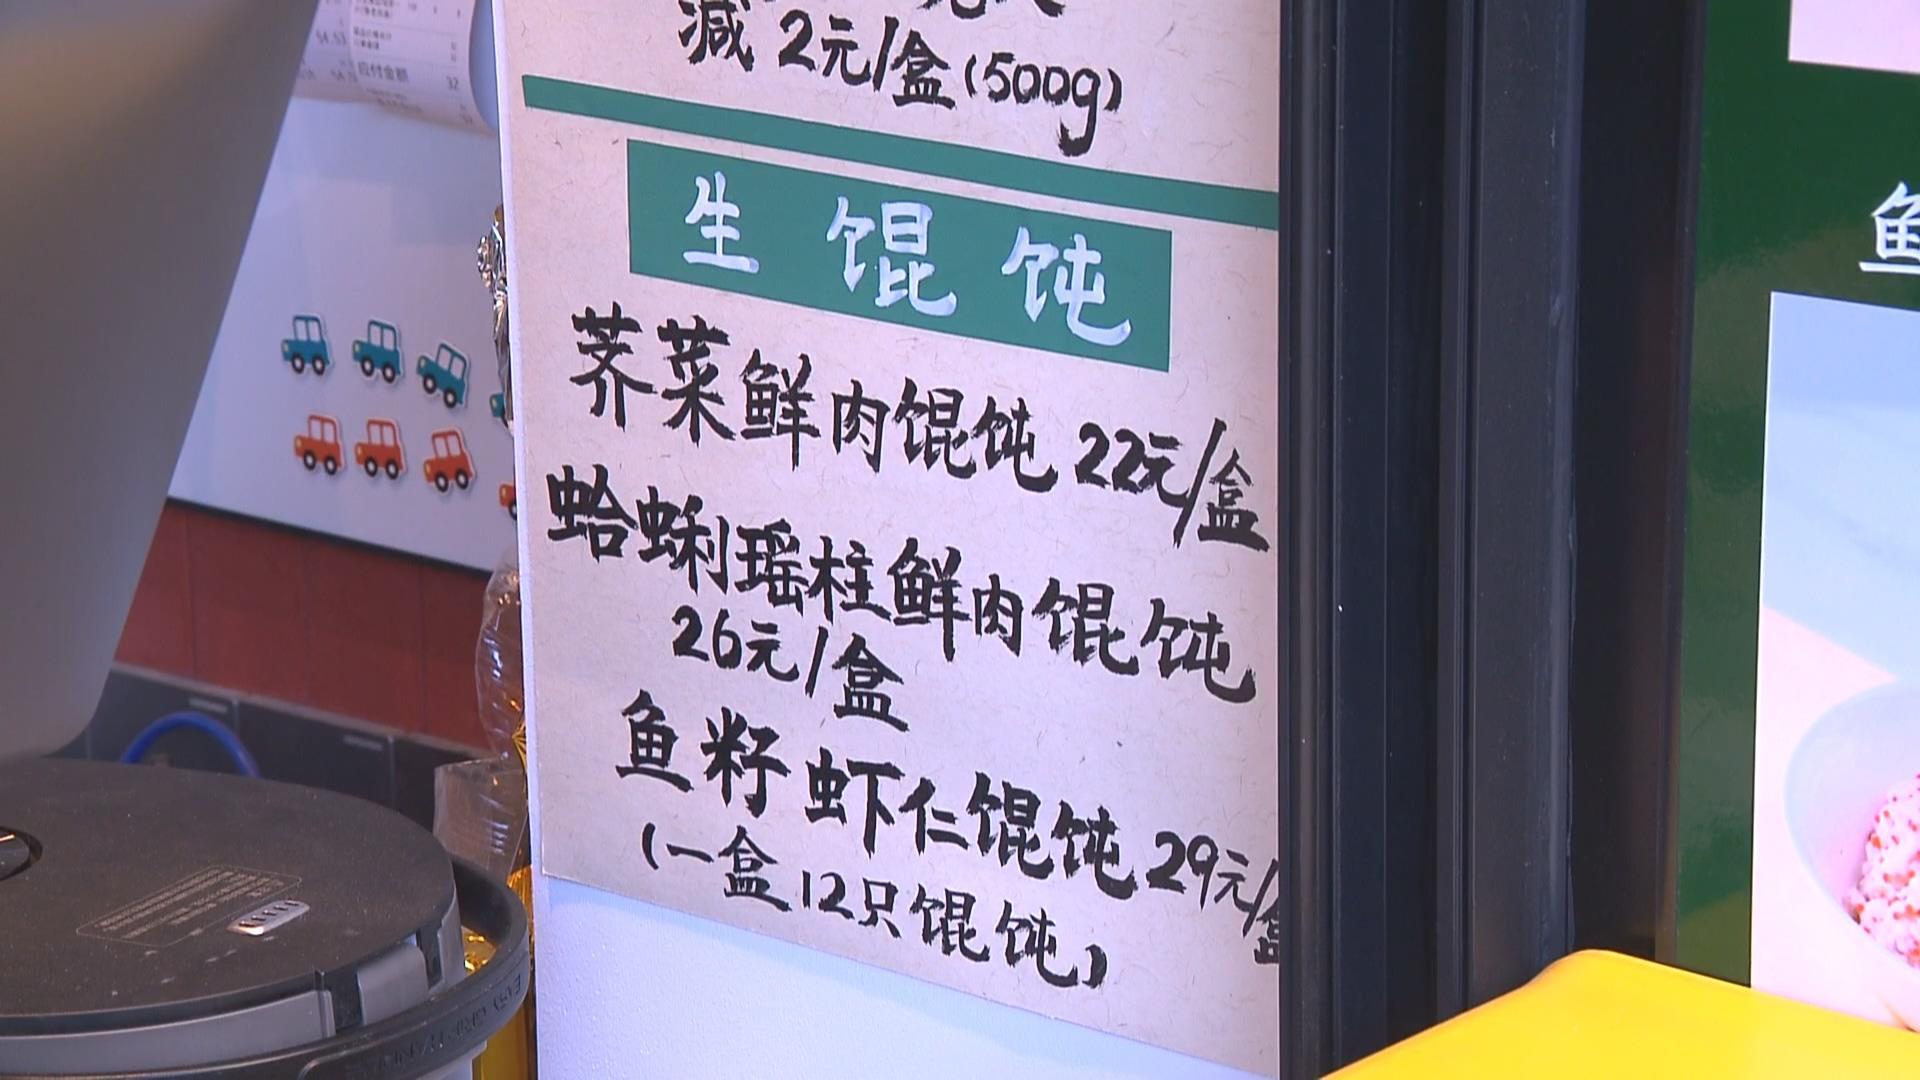 减2元/盒(500g)
生馄饨
荠菜鲜肉馄饨 22元/盒
蛤蜊瑶柱鲜肉馄饨
26元/盒
鱼籽虾仁馄饨 29元/盒
(一盒12只馄饨)
应付金额 32
鱼